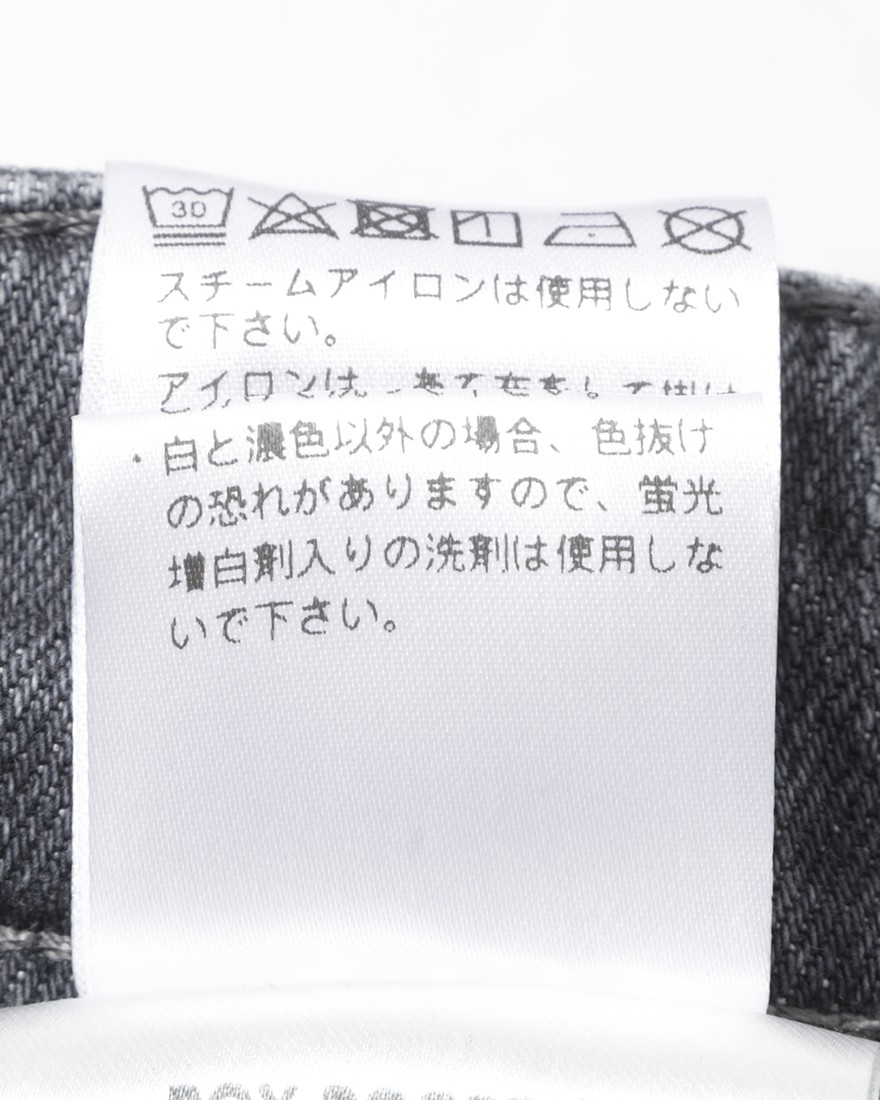 30
スチームアイロンは使用しない
で下さい。
アイロンは
・白と濃色以外の場合、色抜け
の恐れがありますので、蛍光
増白剤入りの洗剤は使用しな
いで下さい。